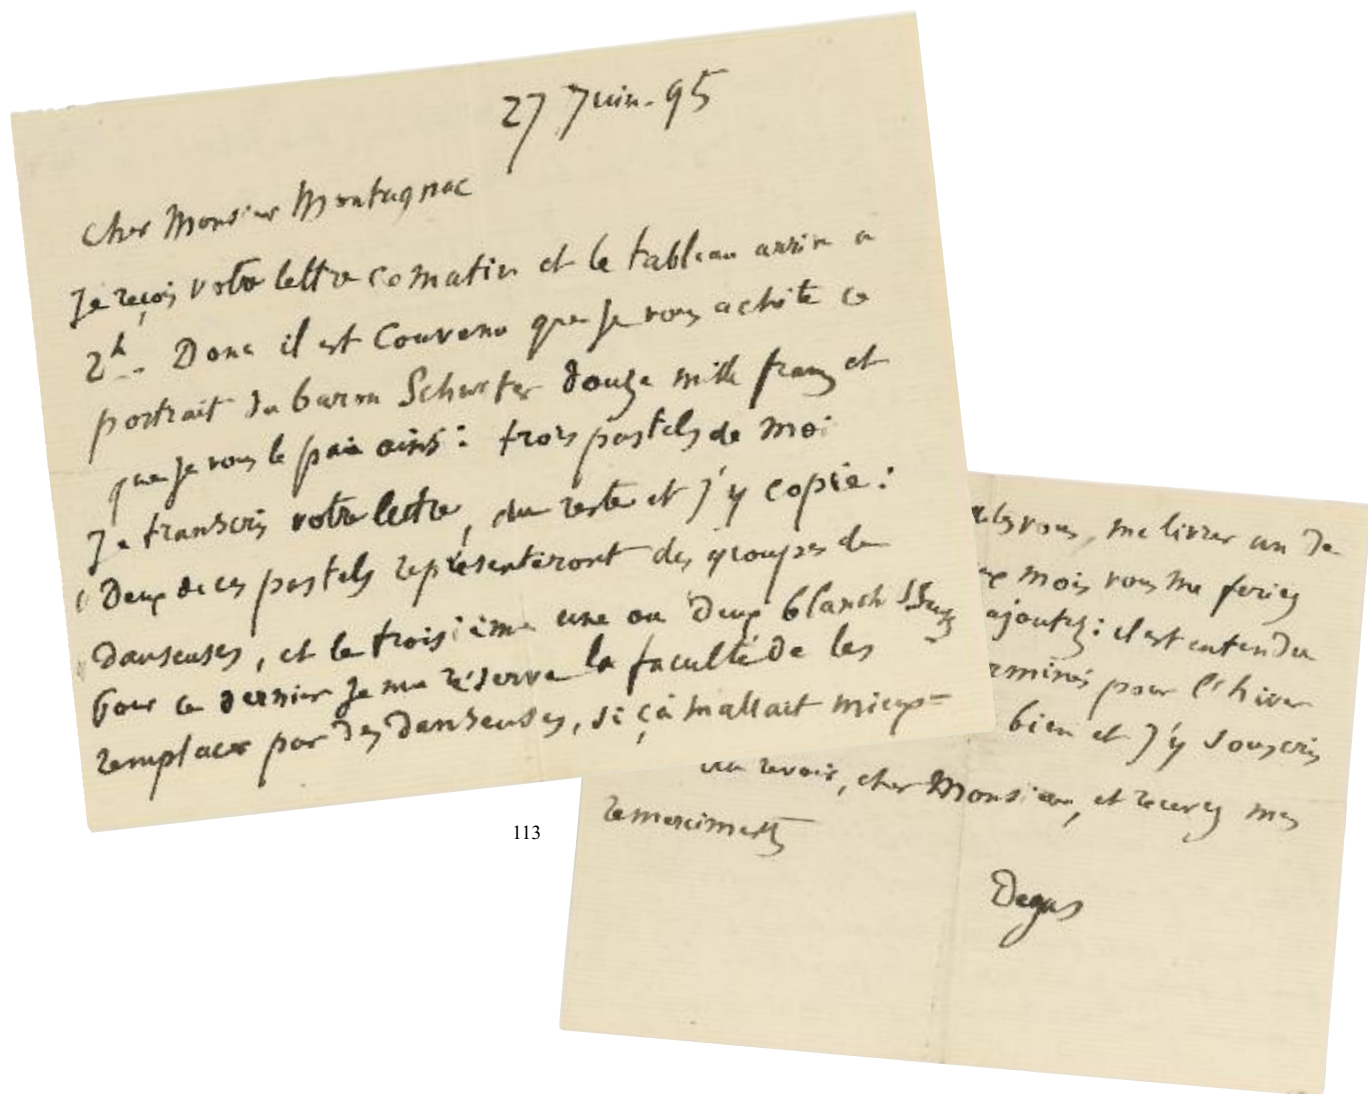 27 Juin. 95
Cher Monsieur Montagnac
Je reçois votre lettre ce matin et le tableau arrive a
2h. Donc il est convenu que je vous achète ce
portrait du baron Schwiter douze mille francs et
que je vous le paie ainsi : trois pastels de moi
Je transcris votre lettre, du reste et j'y copie :
" Deux de ces pastels représenteront des groupes de
danseuses, et le troisième une ou deux blanchisseuses
Pour ce dernier je me réserve la faculté de les
remplacer par des danseuses, si çà m'allait mieux =
vous, me livrer un de
mois vous me feriez
ajoutez : il est entendu
pour l'hiver
bien et j'y souscris
revoir, cher Monsieur, et recevez mes
remerciments
Degas
113